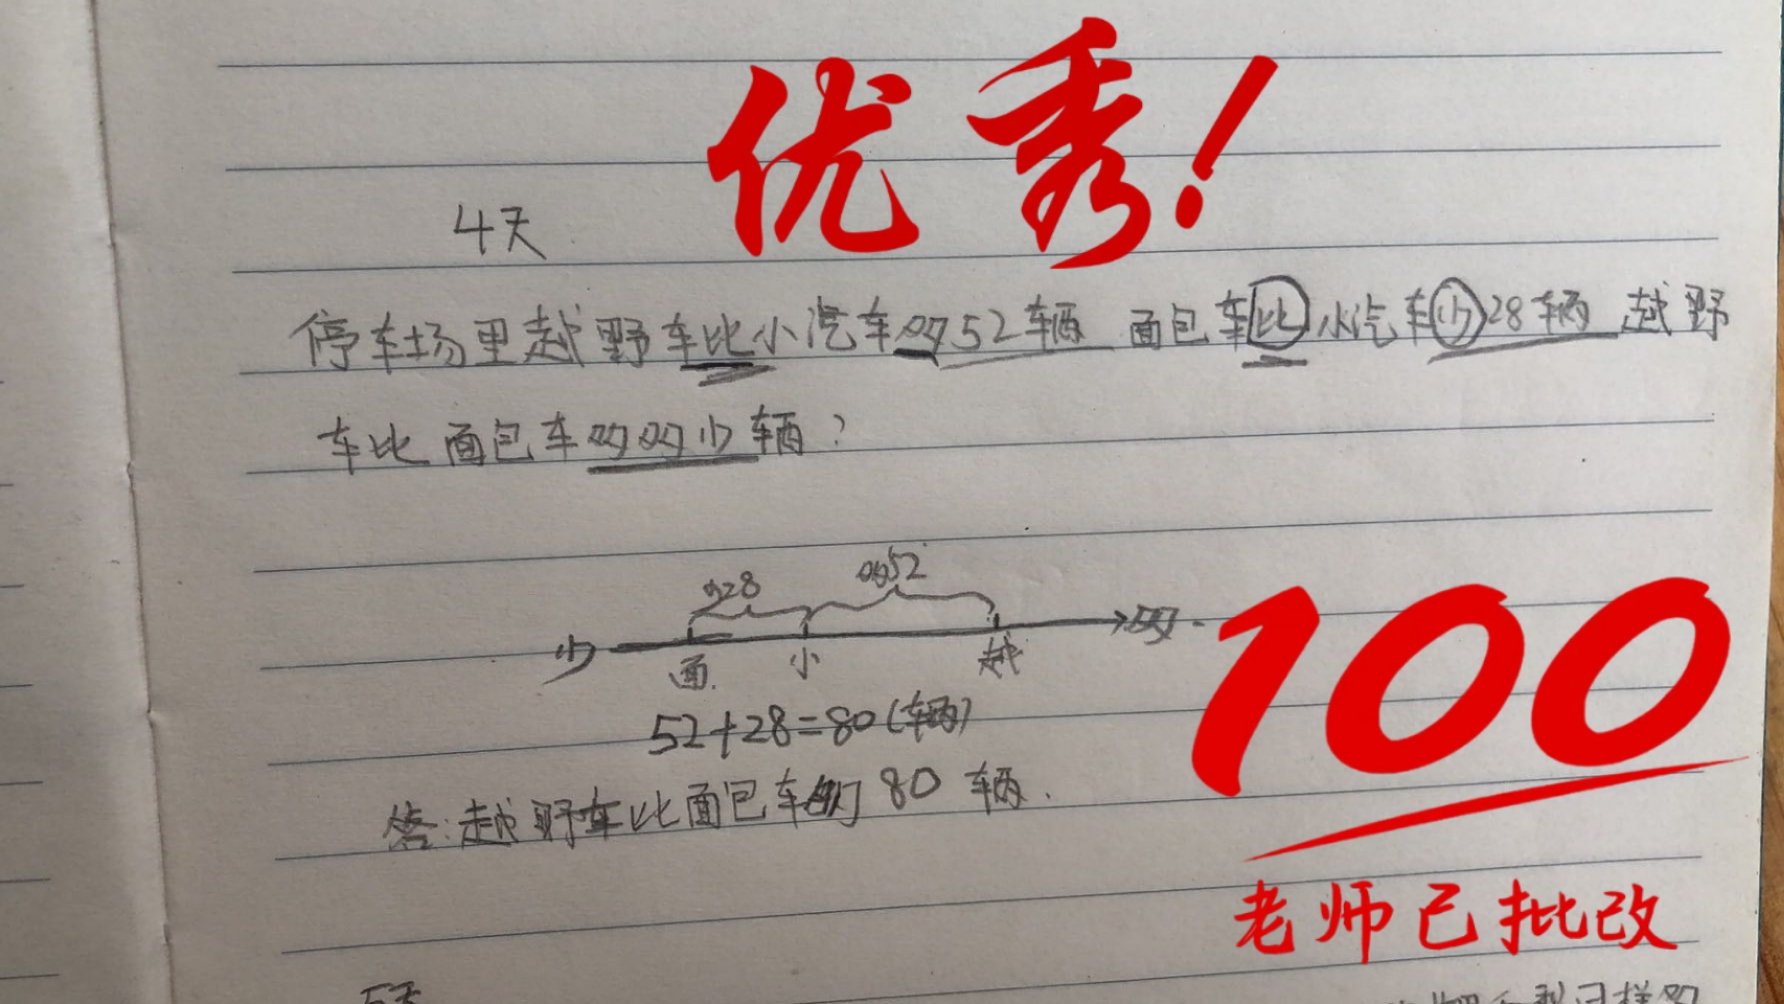 优秀！
4天
停车场里越野车比小汽车多52辆 面包车比小汽车少28辆 越野
车比面包车多多少辆？
少28 多52
少 多
面 小 越
52+28=80(辆)
答:越野车比面包车多80辆.
100
老师已批改
5天